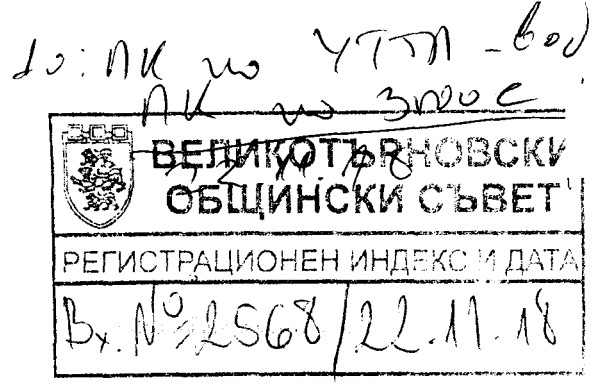 до: ПК по УТТП - вод
ПК по ЗПООС
ВЕЛИКОТЪРНОВСКИ
ОБЩИНСКИ СЪВЕТ
РЕГИСТРАЦИОНЕН ИНДЕКС И ДАТА
Вх. № 2568/22.11.18